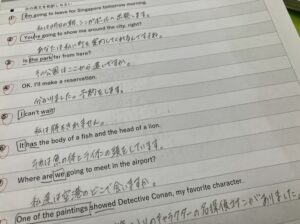 次の英文を和訳しなさい。
I'm going to leave for Singapore tomorrow morning.
私は明日の朝、シンガポールへ出発します。
② You're going to show me around the city, right?
あなたは私に町を案内してくれるんですよね。
③ Is the park far from here?
その公園はここから遠いですか。
④ OK. I'll make a reservation.
分かりました。予約をします。
⑤ I can't wait!
私は待ちきれません。
⑥ It has the body of a fish and the head of a lion.
魚の体とライオンの頭をしています。
⑦ Where are we going to meet in the airport?
私達は空港のどこで会いますか。
One of the paintings showed Detective Conan, my favorite character.
キャラクターの名探偵コナンがありました